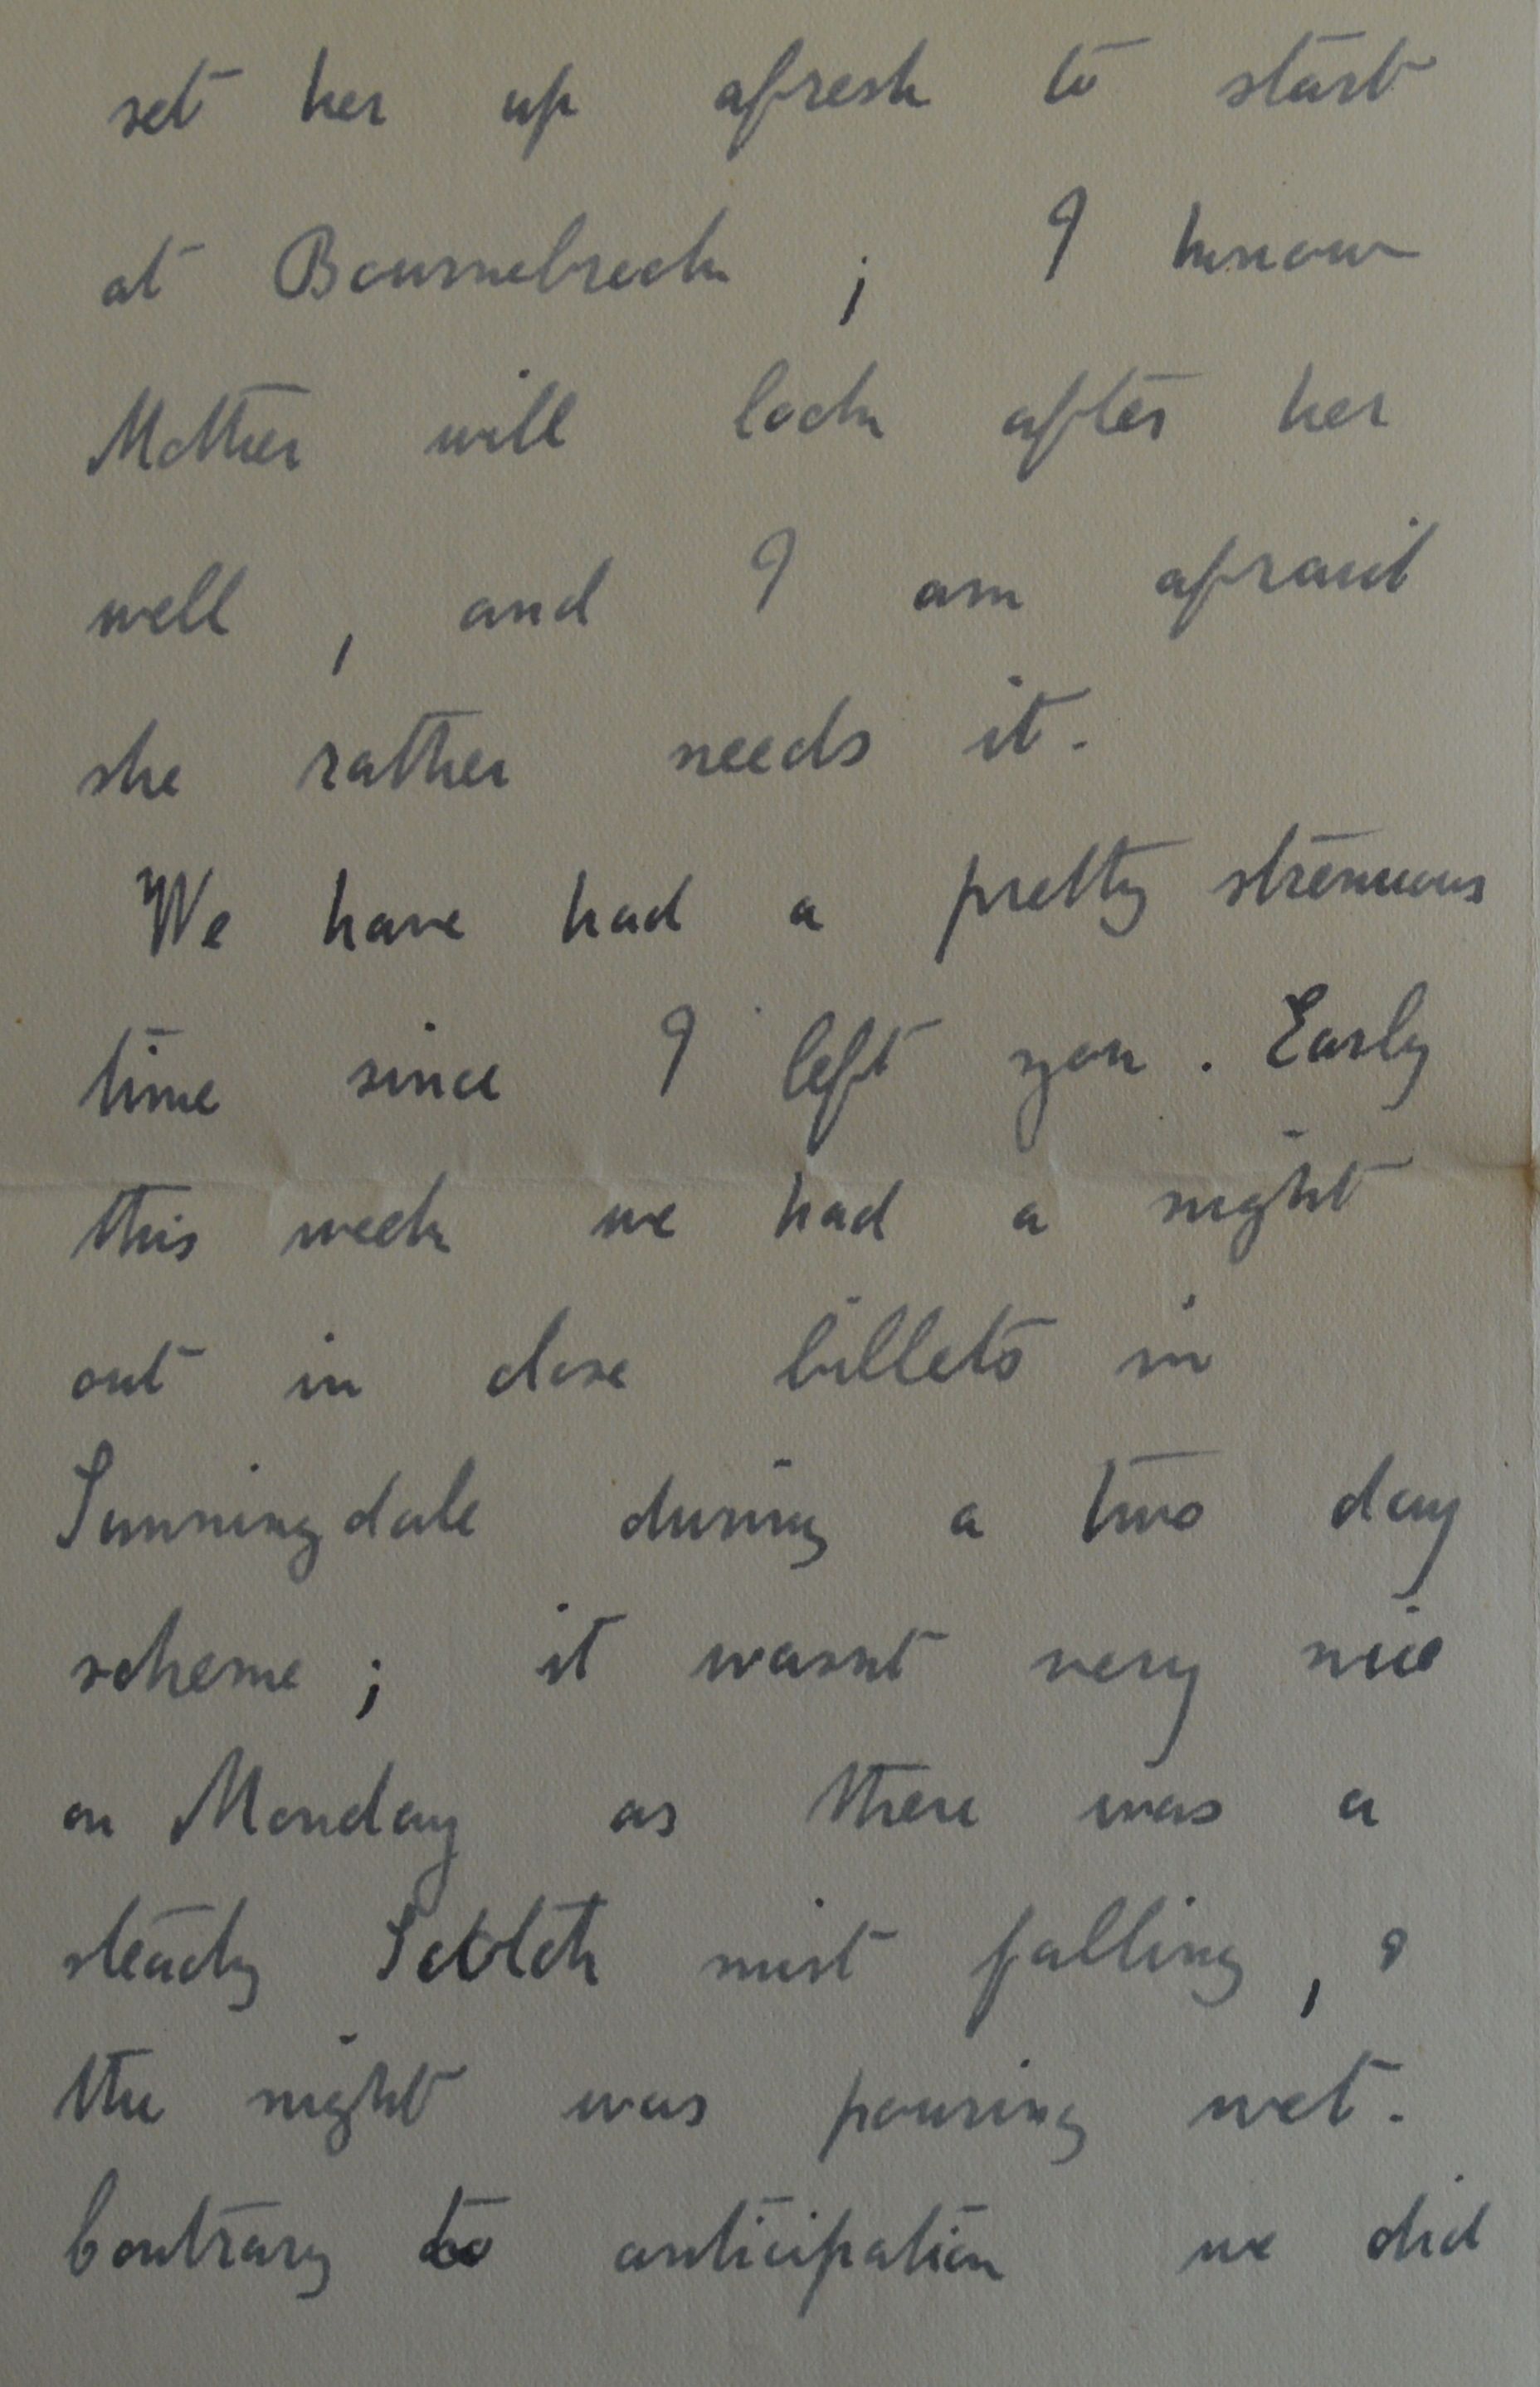 set her up afresh to start
at Bournebrook ; I know
Mother will look after her
well , and I am afraid
she rather needs it.
We have had a pretty strenuous
time since I left you . Early
this week we had a night
out in close billets in
Sunningdale during a two day
scheme ; it wasnt very nice
on Monday as there was a
steady Scotch mist falling , &
the night was pouring wet.
Contrary to anticipation we did